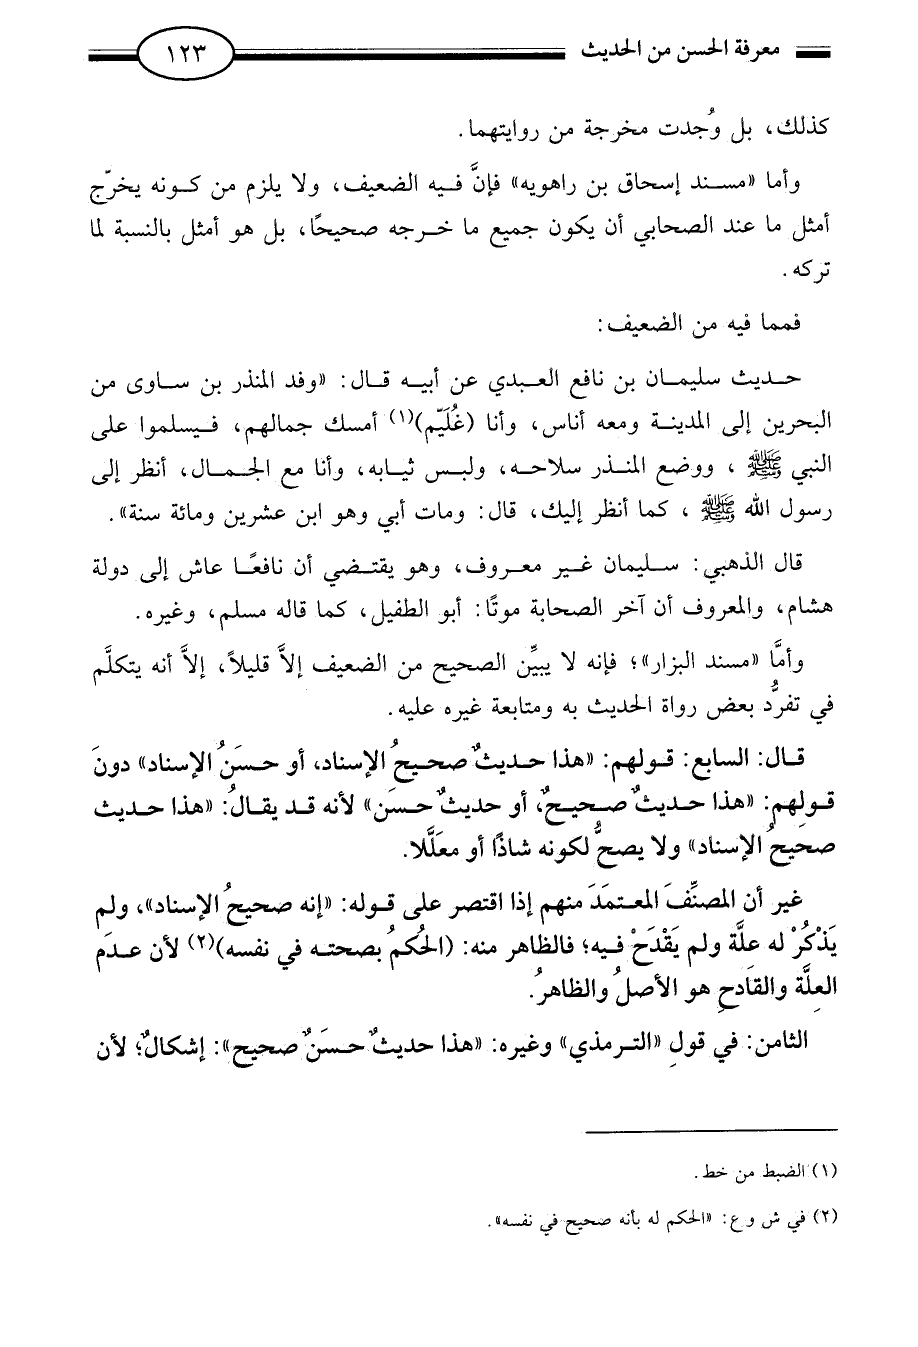 معرفة الحسن من الحديث
١٢٣
كذلك، بل وُجدت مخرجة من روايتهما.
وأما «مسند إسحاق بن راهويه» فإنَّ فيه الضعيف، ولا يلزم من كونه يخرّج
أمثل ما عند الصحابي أن يكون جميع ما خرجه صحيحًا، بل هو أمثل بالنسبة لما
تركه.
فمما فيه من الضعيف:
حديث سليمان بن نافع العبدي عن أبيه قال: «وفد المنذر بن ساوى من
البحرين إلى المدينة ومعه أناس، وأنا (غُلَيّم)(١) أمسك جمالهم، فيسلموا على
النبي ﷺ، ووضع المنذر سلاحه، ولبس ثيابه، وأنا مع الجمال، أنظر إلى
رسول الله ﷺ، كما أنظر إليك، قال: ومات أبي وهو ابن عشرين ومائة سنة».
قال الذهبي: سليمان غير معروف، وهو يقتضي أن نافعًا عاش إلى دولة
هشام، والمعروف أن آخر الصحابة موتًا: أبو الطفيل، كما قاله مسلم، وغيره.
وأمَّا «مسند البزار»؛ فإنه لا يبيِّن الصحيح من الضعيف إلاَّ قليلاً، إلاَّ أنه يتكلَّم
في تفرُّد بعض رواة الحديث به ومتابعة غيره عليه.
قال: السابع: قولهم: «هذا حديثٌ صحيحُ الإسناد، أو حسَنُ الإسناد» دونَ
قولِهم: «هذا حديثٌ صحيحٌ، أو حديثٌ حسَن» لأنه قد يقالُ: «هذا حديث
صحيحُ الإسناد» ولا يصحُّ لكونه شاذًا أو معلَّلا.
غير أن المصنِّفَ المعتمَدَ منهم إذا اقتصر على قوله: «إنه صحيحُ الإسناد»، ولم
يَذْكُرْ له علَّة ولم يَقْدَحْ فيه؛ فالظاهر منه: (الحُكمُ بصحته في نفسه)(٢) لأن عدَم
العِلَّة والقادحِ هو الأصلُ والظاهرُ.
الثامن: في قولِ «الترمذي» وغيره: «هذا حديثٌ حسَنٌ صحيح»: إشكالٌ؛ لأن
(١) الضبط من خط.
(٢) في ش و ع: «الحكم له بأنه صحيح في نفسه».